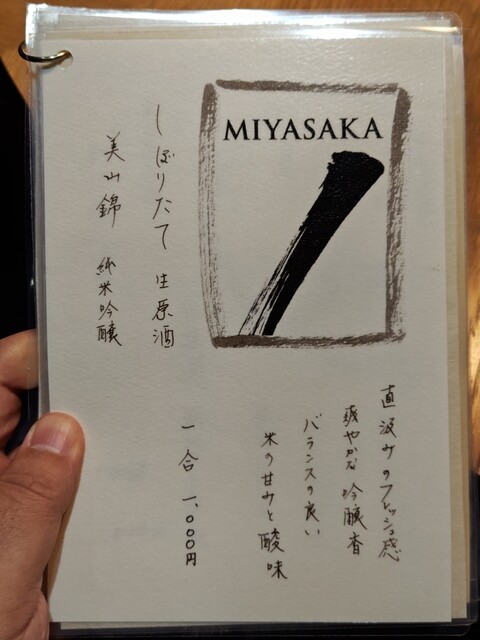 MIYASAKA
しぼりたて 生原酒
美山錦 純米吟醸
直汲みのフレッシュ感
爽やかな吟醸香
バランスの良い
米の甘みと酸味
一合 一、〇〇〇円